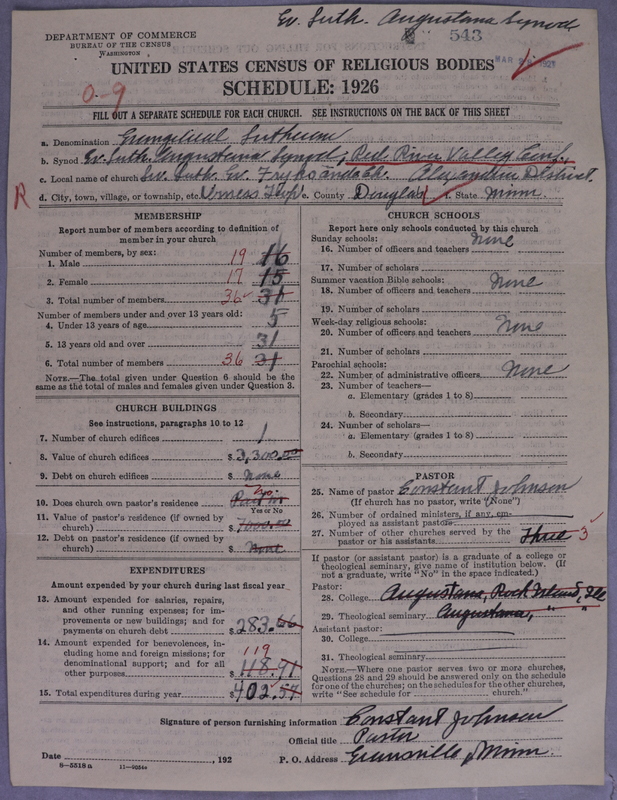 Ev. Luth. Augustana Synod.
DEPARTMENT OF COMMERCE
BUREAU OF THE CENSUS
WASHINGTON
543
UNITED STATES CENSUS OF RELIGIOUS BODIES
SCHEDULE: 1926
0-9
FILL OUT A SEPARATE SCHEDULE FOR EACH CHURCH. SEE INSTRUCTIONS ON THE BACK OF THIS SHEET
a. Denomination Evangelical Lutheran
b. Synod Ev. Luth. Augustana Synod; Red River Valley Conf.,
c. Local name of church Sw. Luth. Ev. Alexandria District.
R d. City, town, village, or township, etc. Urness Twp e. County Douglas f. State Minn.
MEMBERSHIP
Report number of members according to definition of member in your church
Number of members, by sex:
1. Male 19 16
2. Female 17 15
3. Total number of members 36 31
Number of members under and over 13 years old:
4. Under 13 years of age 5
5. 13 years old and over 31
6. Total number of members 36 31
NOTE.—The total given under Question 6 should be the same as the total of males and females given under Question 3.
CHURCH BUILDINGS
See instructions, paragraphs 10 to 12
7. Number of church edifices 1
8. Value of church edifices $3,300.00
9. Debt on church edifices $ None
10. Does church own pastor's residence No
Yes or No
11. Value of pastor's residence (if owned by church) $1000.00
12. Debt on pastor's residence (if owned by church) $ None
EXPENDITURES
Amount expended by your church during last fiscal year
13. Amount expended for salaries, repairs, and other running expenses; for improvements or new buildings; and for payments on church debt $283.66
14. Amount expended for benevolences, including home and foreign missions; for denominational support; and for all other purposes 119 118.91
15. Total expenditures during year $402.57
CHURCH SCHOOLS
Report here only schools conducted by this church
Sunday schools:
16. Number of officers and teachers None
17. Number of scholars
Summer vacation Bible schools:
18. Number of officers and teachers None
19. Number of scholars
Week-day religious schools:
20. Number of officers and teachers None
21. Number of scholars
Parochial schools:
22. Number of administrative officers None
23. Number of teachers—
a. Elementary (grades 1 to 8)
b. Secondary
24. Number of scholars—
a. Elementary (grades 1 to 8)
b. Secondary
PASTOR
25. Name of pastor Constant Johnson
(If church has no pastor, write "None")
26. Number of ordained ministers, if any, employed as assistant pastors
27. Number of other churches served by the pastor or his assistants Three 3
If pastor (or assistant pastor) is a graduate of a college or theological seminary, give name of institution below. (If not a graduate, write "No" in the space indicated.)
Pastor:
28. College Augustana, Rock Island, Ill
29. Theological seminary Augustana, " "
Assistant pastor:
30. College
31. Theological seminary
NOTE.—Where one pastor serves two or more churches, Questions 28 and 29 should be answered only on the schedule for one of the churches; on the schedules for the other churches, write "See schedule for church."
Signature of person furnishing information Constant Johnson
Official title Pastor
Date , 192 P. O. Address Evansville, Minn.
8-5518a 11-9034